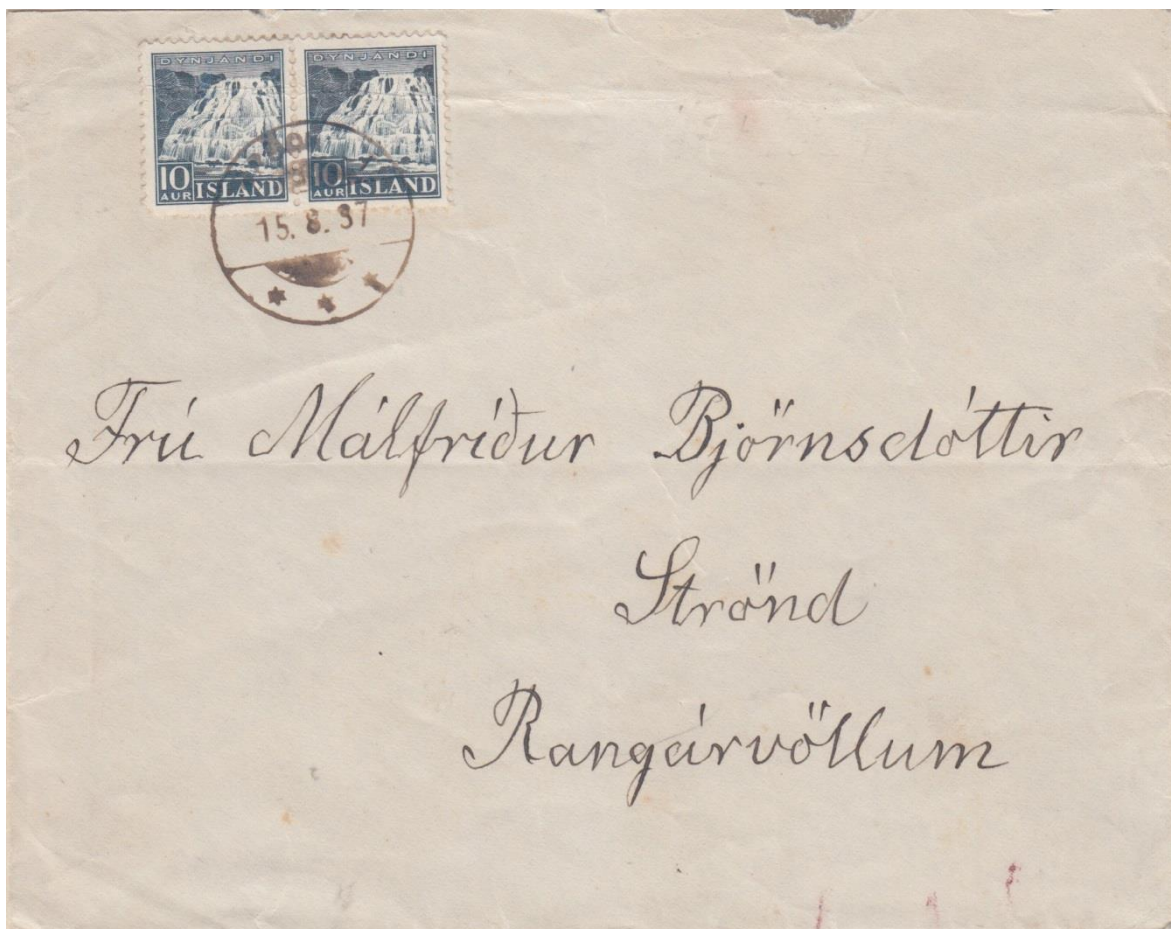 DYNJANDI DYNJANDI
10 AUR ISLAND 10 AUR ISLAND
15.8.37
Frú Málfríður Björnsdóttir
Strönd
Rangárvöllum